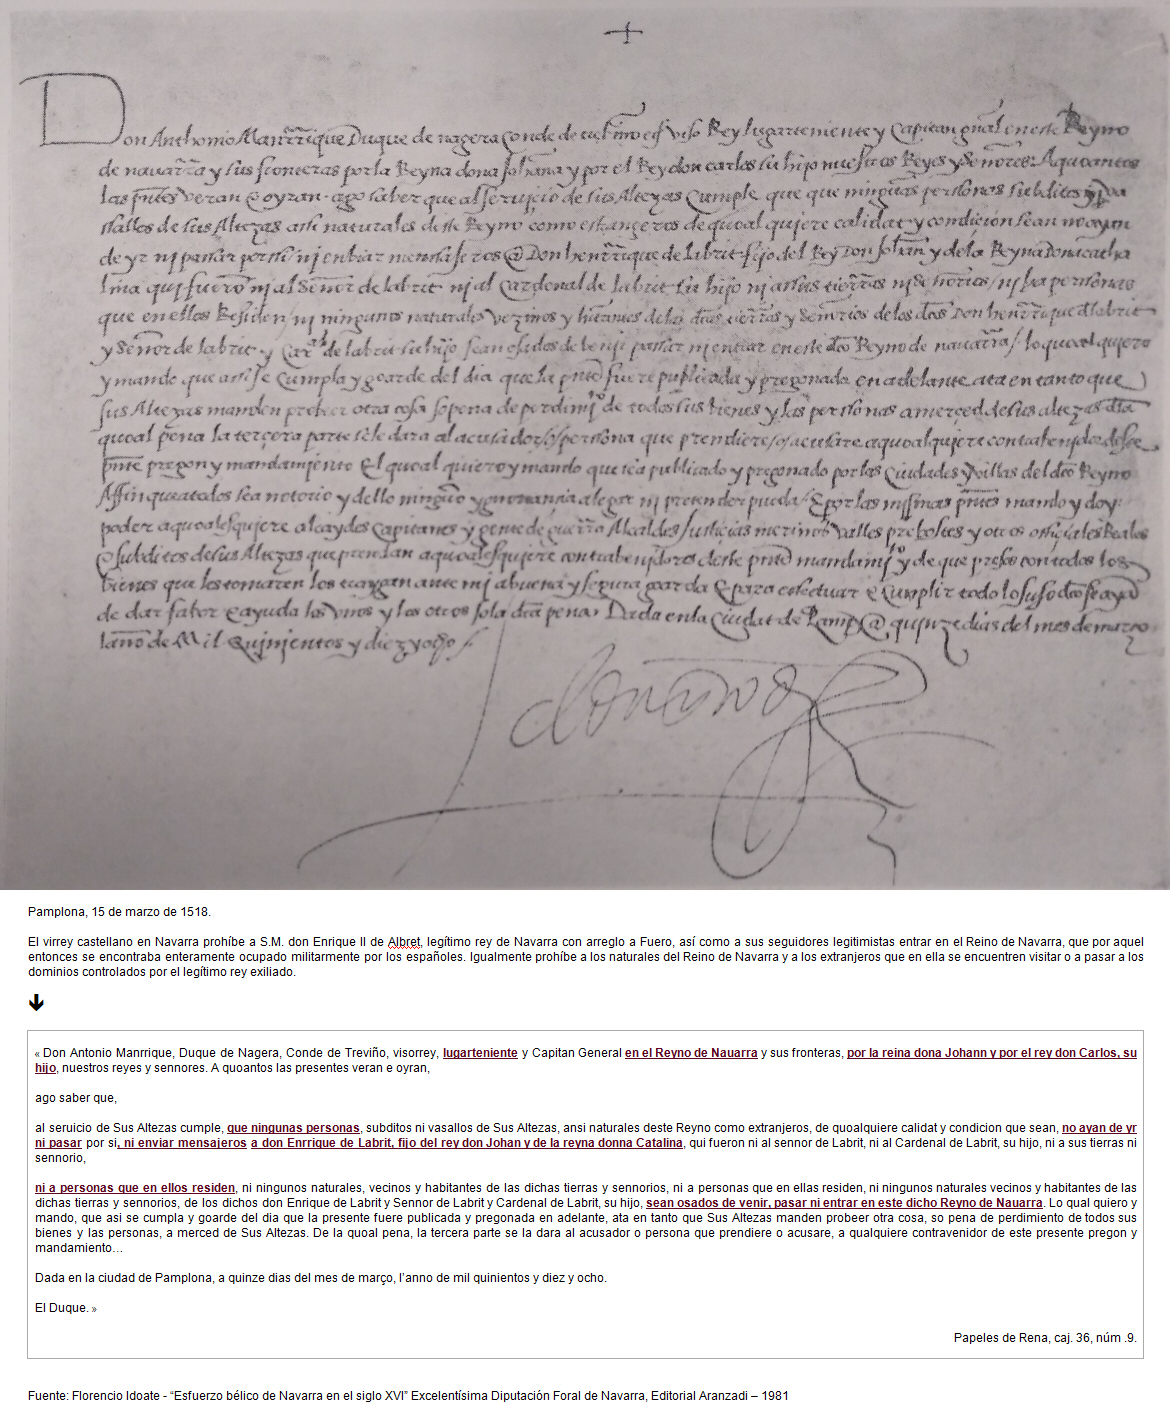 Don Anthonio Manrrique Duque de nagera Conde de viso Rey lugarteniente y Capitan gñal en este Reyno
de navarra y sus fronteras por la Reyna dona Johana y por el Rey don carlos su hijo nuestros Reyes y Señores: A quoantos
las pñtes veran E oyran. ago saber que al seruiçio de sus Altezas Cumple que que ningunas personas subditos ni va
ssallos de sus Altezas assi naturales deste Reyno como estrangeros de quoal quiere calidat y condiçion sean no ayan
de yr ni passar por si ni enbiar mensajeros @ Don henrrique de labrit fijo del Rey Don Johan y de la Reyna Dona catha
lina qui fueron ni al Señor de labrit ni al Cardenal de labrit su hijo ni a sus tierras ni señorios / ni ha personas
que en ellos Residen / ni ningunos naturales vezinos y de las dhas tierras y Señorios de los dhos Don henrrique d labrit
y Señor de labrit y Carl de labrit su hijo sean osados de benir passar ni entrar en este dho Reyno de navarra / lo quoal quiero
y mando que assi se Cumpla y goarde del dia que la pñte fuere publicada y pregonada en adelante ata en tanto que
sus Altezas manden probeer otra cosa so pena de perdimjo de todos sus bienes y las personas a merced de sus altezas dela
quoal pena la terçera parte se le dara al acusador /o/ persona que prendiere /o/ acusare a quoalquiere contrabenidor desse
pñte pregon y mandamiento El quoal quiero y mando que sea publicado y pregonado por las Ciudades y villas del dho Reyno
Affin que a todos sea notorio y dello ninguno ygnorancia alegar ni pretender pueda / E por las missmas pñtes mando y doy
poder a quoalesquiere alcaydes Capitanes y gente de guerra Alcaldes Justicias merinos valles prebostes y otros offiçiales Reales
E subditos de sus Altezas que prendan a quoalesquiere contrabenidores deste pñte mandamjo y de que presos con todos los
bienes que les tomaren los traygan ante mi a buena y segura goarda E para effectuar E Cumplir todo lo suso dho
de dar fabor E ayuda los vnos y los otros so la dha pena, Dada en la Ciudat de Pampa @ quinze dias del mes de março
lanno de Mil Quinientos y diez y ocho /
Pamplona, 15 de marzo de 1518.
El virrey castellano en Navarra prohíbe a S.M. don Enrique II de Albret, legítimo rey de Navarra con arreglo a Fuero, así como a sus seguidores legitimistas entrar en el Reino de Navarra, que por aquel
entonces se encontraba enteramente ocupado militarmente por los españoles. Igualmente prohíbe a los naturales del Reino de Navarra y a los extranjeros que en ella se encuentren visitar o a pasar a los
dominios controlados por el legítimo rey exiliado.
« Don Antonio Manrrique, Duque de Nagera, Conde de Treviño, visorrey, lugarteniente y Capitan General en el Reyno de Nauarra y sus fronteras, por la reina dona Johann y por el rey don Carlos, su
hijo, nuestros reyes y sennores. A quoantos las presentes veran e oyran,
ago saber que,
al seruicio de Sus Altezas cumple, que ningunas personas, subditos ni vasallos de Sus Altezas, ansi naturales deste Reyno como extranjeros, de quoalquiere calidat y condicion que sean, no ayan de yr
ni pasar por si, ni enviar mensajeros a don Enrrique de Labrit, fijo del rey don Johan y de la reyna donna Catalina, qui fueron ni al sennor de Labrit, ni al Cardenal de Labrit, su hijo, ni a sus tierras ni
sennorio,
ni a personas que en ellos residen, ni ningunos naturales, vecinos y habitantes de las dichas tierras y sennorios, ni a personas que en ellas residen, ni ningunos naturales vecinos y habitantes de las
dichas tierras y sennorios, de los dichos don Enrique de Labrit y Sennor de Labrit y Cardenal de Labrit, su hijo, sean osados de venir, pasar ni entrar en este dicho Reyno de Nauarra. Lo qual quiero y
mando, que asi se cumpla y goarde del dia que la presente fuere publicada y pregonada en adelante, ata en tanto que Sus Altezas manden probeer otra cosa, so pena de perdimiento de todos sus
bienes y las personas, a merced de Sus Altezas. De la quoal pena, la tercera parte se la dara al acusador o persona que prendiere o acusare, a qualquiere contravenidor de este presente pregon y
mandamiento...
Dada en la ciudad de Pamplona, a quinze dias del mes de março, l'anno de mil quinientos y diez y ocho.
El Duque. »
Papeles de Rena, caj. 36, núm .9.
Fuente: Florencio Idoate - “Esfuerzo bélico de Navarra en el siglo XVI” Excelentísima Diputación Foral de Navarra, Editorial Aranzadi – 1981